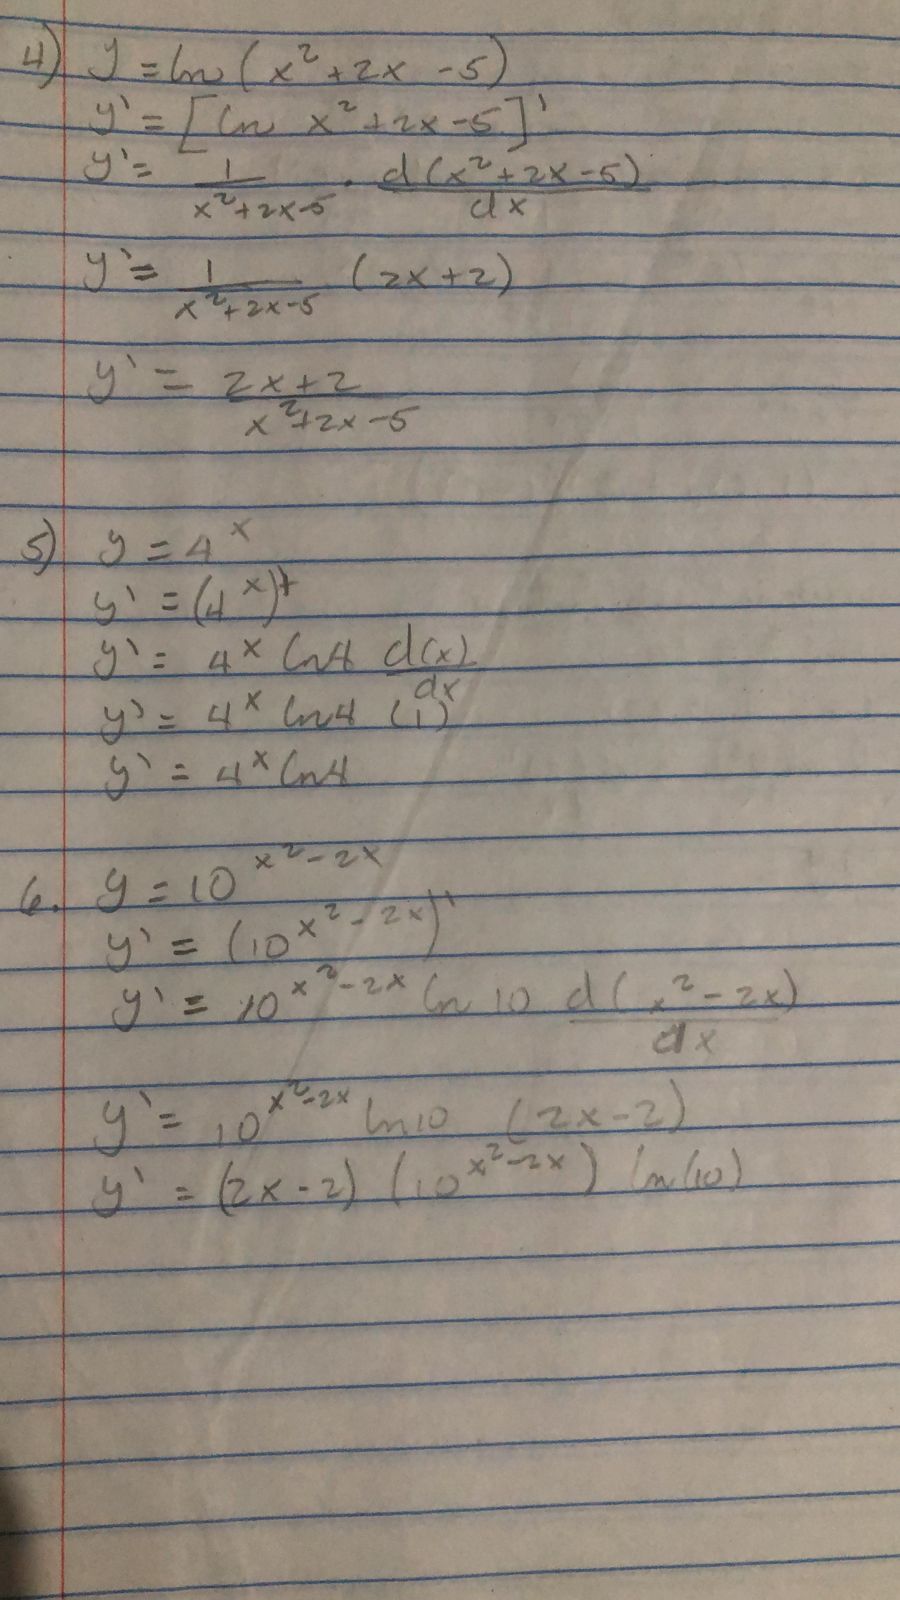 4) y = ln (x² + 2x - 5)
y' = [ln x² + 2x - 5]'
y' = 1/(x² + 2x - 5) · d(x² + 2x - 5)/dx
y' = 1/(x² + 2x - 5) (2x + 2)
y' = (2x + 2)/(x² + 2x - 5)
5) y = 4^x
y' = (4^x)'
y' = 4^x ln4 d(x)/dx
y' = 4^x ln4 (1)
y' = 4^x ln4
6. y = 10^(x² - 2x)
y' = (10^(x² - 2x))'
y' = 10^(x² - 2x) ln 10 d(x² - 2x)/dx
y' = 10^(x² - 2x) ln10 (2x - 2)
y' = (2x - 2) (10^(x² - 2x)) ln(10)